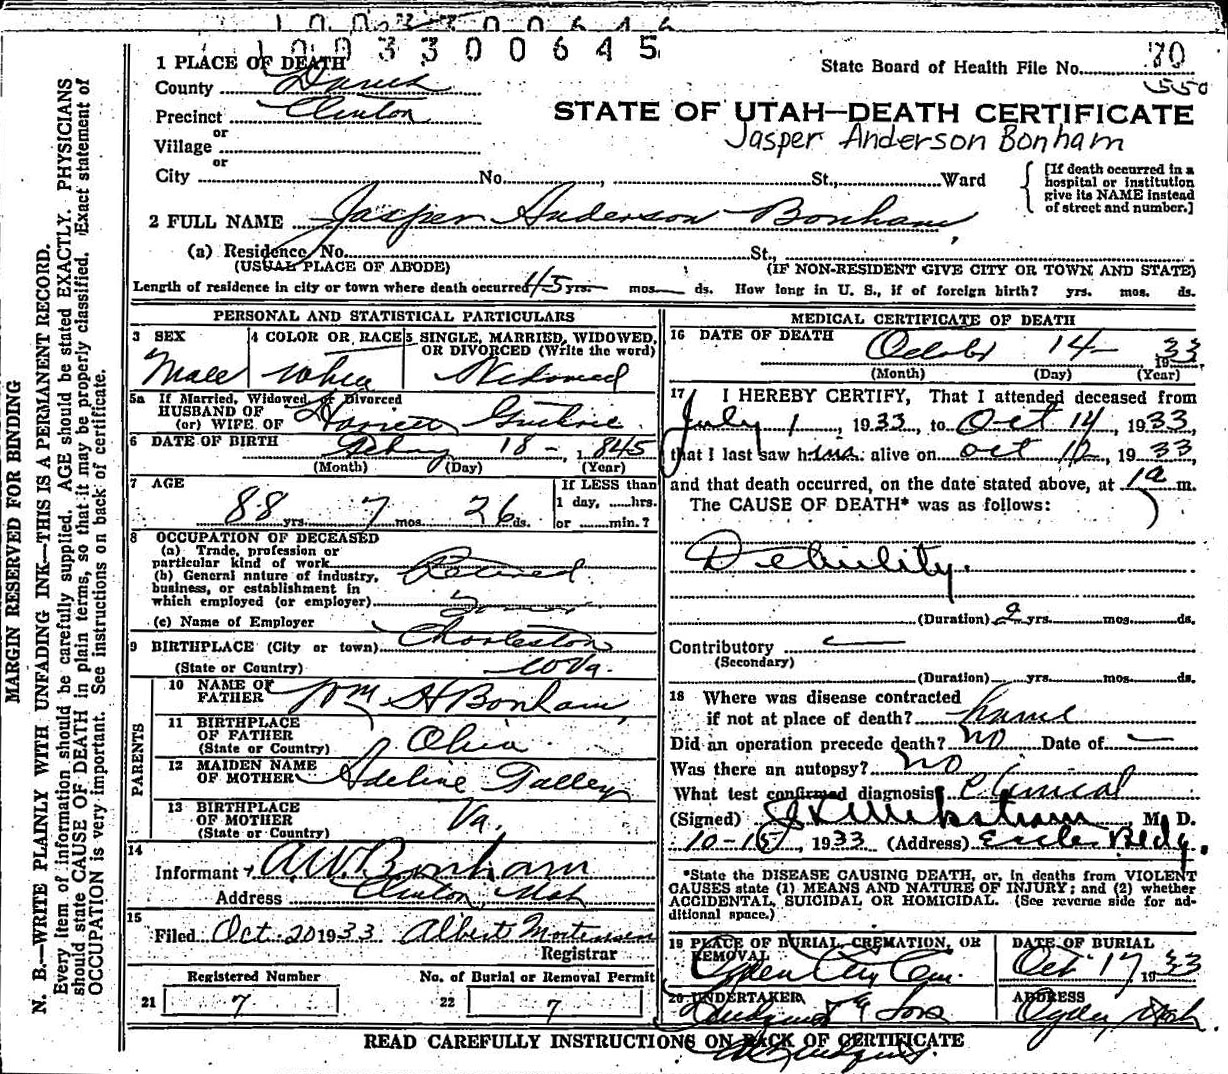 1003300645
1 PLACE OF DEATH
State Board of Health File No. 70
550
County Davis
Precinct Clinton
STATE OF UTAH—DEATH CERTIFICATE
or
Jasper Anderson Bonham
Village
or
City No. , St., Ward
[If death occurred in a
hospital or institution
give its NAME instead
of street and number.]
2 FULL NAME Jasper Anderson Bonham
(a) Residence No. St.,
(USUAL PLACE OF ABODE) (IF NON-RESIDENT GIVE CITY OR TOWN AND STATE)
Length of residence in city or town where death occurred 45 yrs. mos. ds. How long in U. S., if of foreign birth? yrs. mos. ds.
PERSONAL AND STATISTICAL PARTICULARS
3 SEX Male
4 COLOR OR RACE White
5 SINGLE, MARRIED, WIDOWED,
OR DIVORCED (Write the word)
Widowed
5a If Married, Widowed or Divorced
HUSBAND OF
(or) WIFE OF Harriett Guthrie
6 DATE OF BIRTH Feby 18 - 1845
(Month) (Day) (Year)
7 AGE
88 yrs. 7 mos. 26 ds.
If LESS than
1 day, ......hrs.
or ......min.?
8 OCCUPATION OF DECEASED
(a) Trade, profession or
particular kind of work Retired
(b) General nature of industry,
business, or establishment in
which employed (or employer)
(c) Name of Employer
9 BIRTHPLACE (City or town) Charleston
(State or Country) W Va.
PARENTS
10 NAME OF
FATHER Wm H Bonham
11 BIRTHPLACE
OF FATHER
(State or Country) Ohio
12 MAIDEN NAME
OF MOTHER Adeline Talley
13 BIRTHPLACE
OF MOTHER
(State or Country) Va.
14
Informant A.W. Bonham
Address Clinton, Utah
15
Filed Oct 20 1933 Albert Mortensen
Registrar
Registered Number No. of Burial or Removal Permit
21 7 22 7
MEDICAL CERTIFICATE OF DEATH
16 DATE OF DEATH October 14 - 1933
(Month) (Day) (Year)
17 I HEREBY CERTIFY, That I attended deceased from
July 1, 1933, to Oct 14, 1933,
that I last saw him alive on Oct 12, 1933,
and that death occurred, on the date stated above, at 1 a m.
The CAUSE OF DEATH* was as follows:
Debility.
(Duration) 2 yrs. mos. ds.
Contributory
(Secondary)
(Duration) yrs. mos. ds.
18 Where was disease contracted
if not at place of death? home
Did an operation precede death? no Date of —
Was there an autopsy? no
What test confirmed diagnosis? Clinical
(Signed) M. D.
10-15, 1933 (Address) Eccles Bldg.
*State the DISEASE CAUSING DEATH, or, in deaths from VIOLENT
CAUSES state (1) MEANS AND NATURE OF INJURY; and (2) whether
ACCIDENTAL, SUICIDAL OR HOMICIDAL. (See reverse side for ad-
ditional space.)
19 PLACE OF BURIAL, CREMATION, OR
REMOVAL
Ogden City Cem.
DATE OF BURIAL
Oct 17 1933
20 UNDERTAKER
Lindquist & Sons
ADDRESS
Ogden, Utah.
READ CAREFULLY INSTRUCTIONS ON BACK OF CERTIFICATE
MARGIN RESERVED FOR BINDING
N. B.—WRITE PLAINLY WITH UNFADING INK—THIS IS A PERMANENT RECORD.
Every item of information should be carefully supplied. AGE should be stated EXACTLY. PHYSICIANS
should state CAUSE OF DEATH in plain terms, so that it may be properly classified. Exact statement of
OCCUPATION is very important. See instructions on back of certificate.